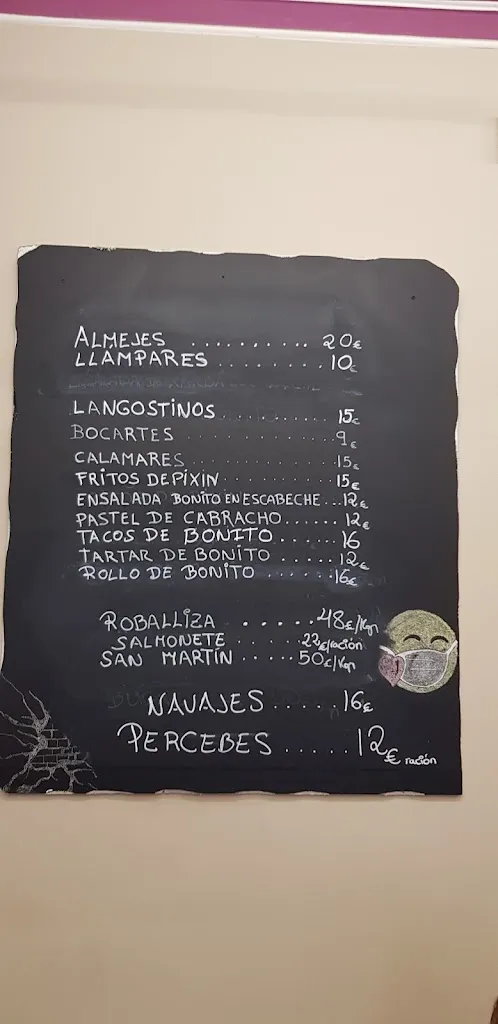 ALMEJES .......... 20€
LLAMPARES ........ 10€
LANGOSTINOS ........ 15€
BOCARTES ........... 9€
CALAMARES .......... 15€
FRITOS DE PIXIN ....... 15€
ENSALADA BONITO EN ESCABECHE ...12€
PASTEL DE CABRACHO...... 12€
TACOS DE BONITO ...... 16
TARTAR DE BONITO ...... 12€
ROLLO DE BONITO ...... 16€
ROBALLIZA ...... 48€/Kgn
SALMONETE ..... 22€/ración
SAN MARTÍN ..... 50€/Kgn
NAVAJES ..... 16€
PERCEBES ..... 12€ ración